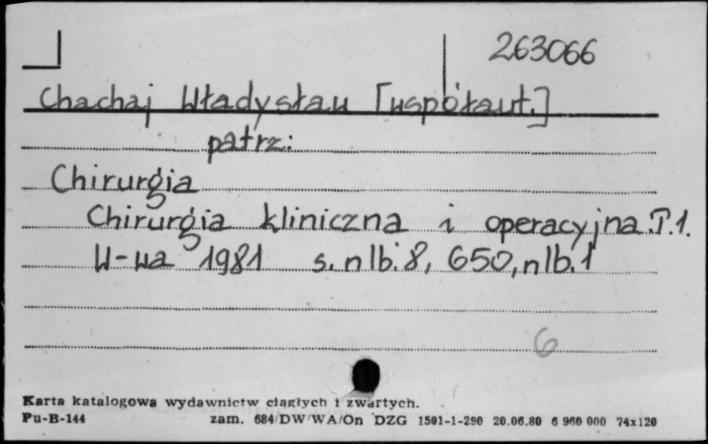 263066
Chachaj Władysław [współaut.]
patrz:
Chirurgia
Chirurgia kliniczna i operacyjna.T.1.
W-wa 1981 s.nlb.8, 650,nlb.1
6
Karta katalogowa wydawnictw ciągłych i zwartych.
Pu-B-144 zam. 684/DW/WA/On DZG 1501-1-290 20.06.80 6 960 000 74x120